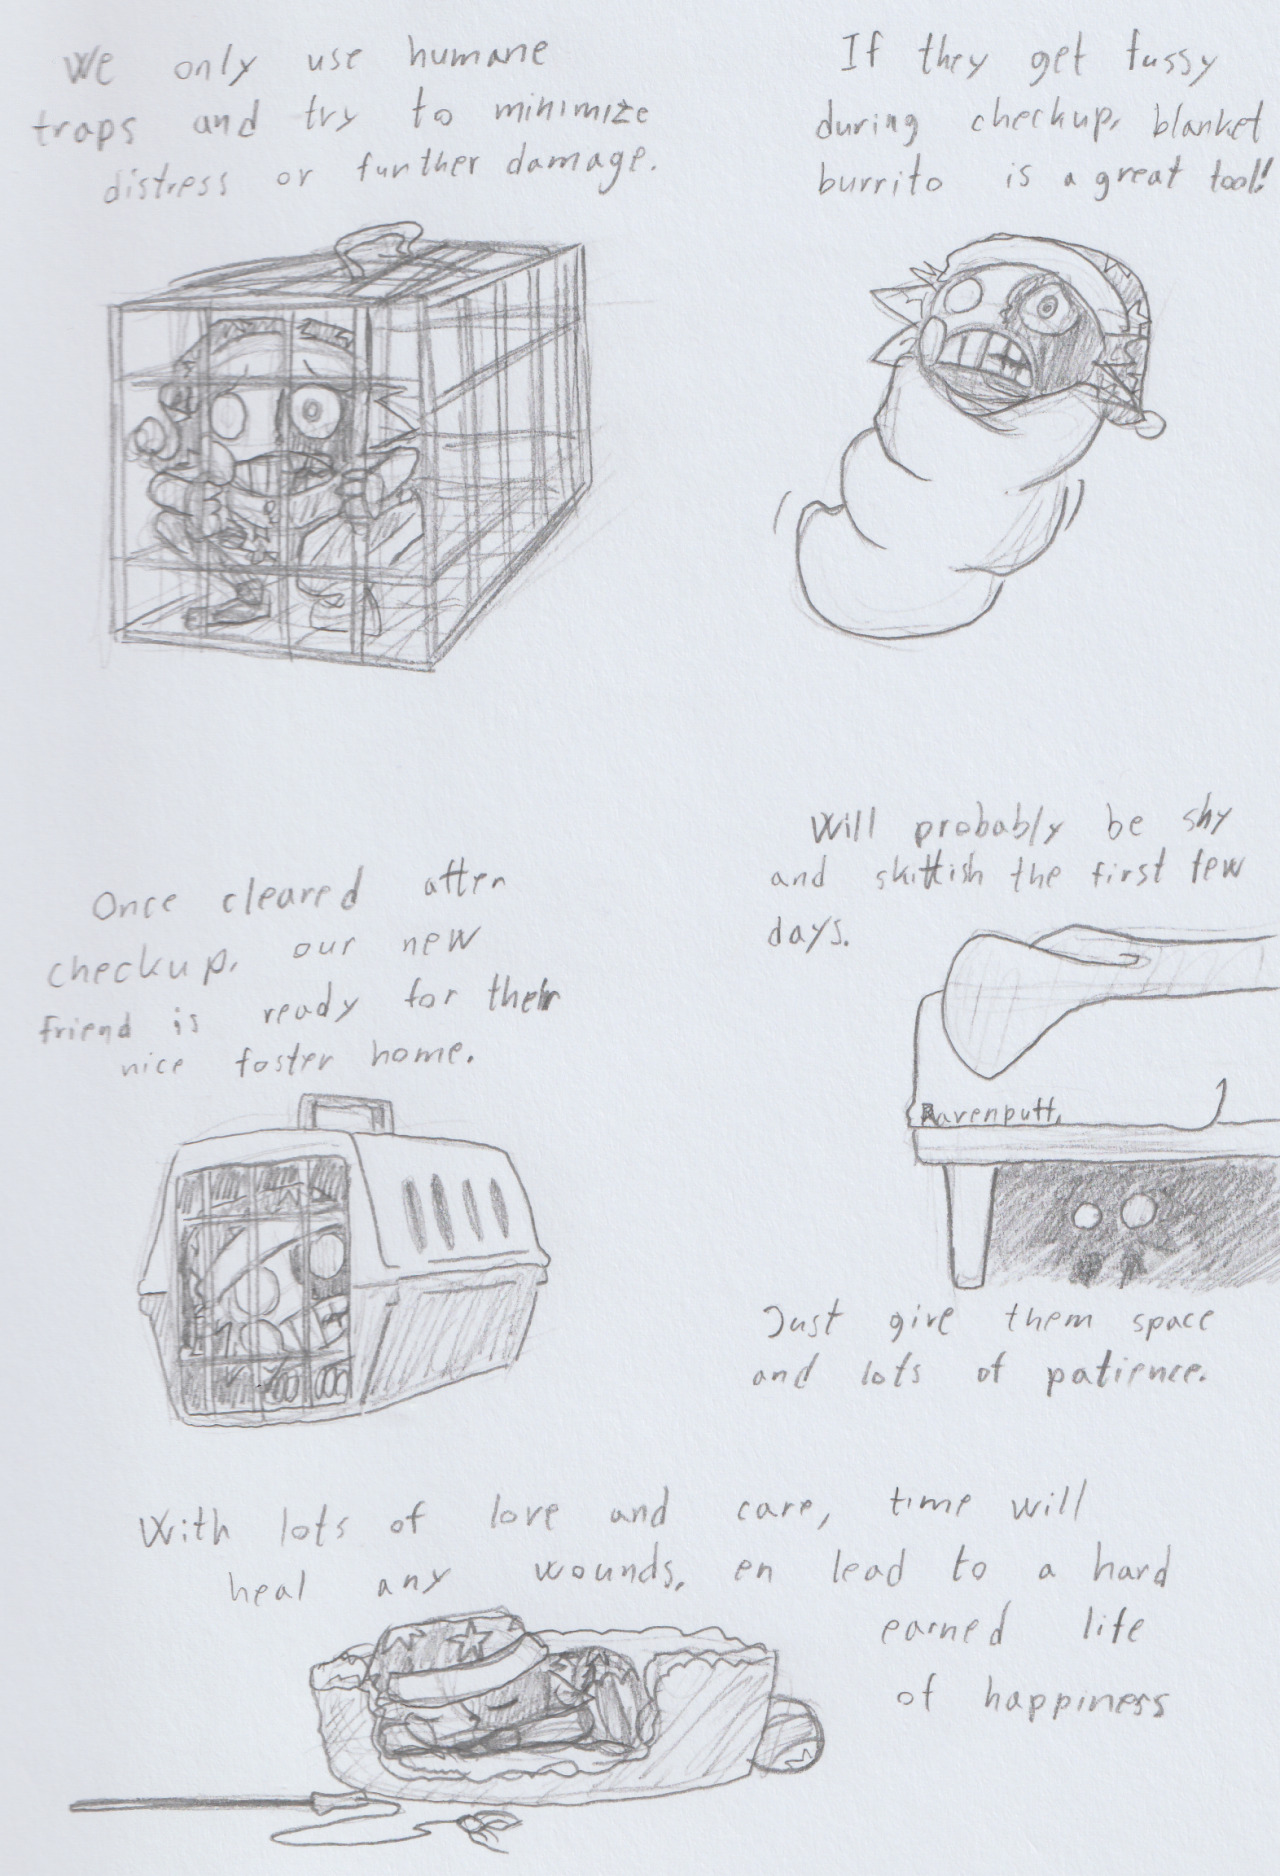 We only use humane
traps and try to minimize
distress or further damage.
If they get fussy
during checkup, blanket
burrito is a great tool!
Once cleared after
checkup, our new
friend is ready for their
nice foster home.
Will probably be shy
and skittish the first few
days.
Ravenputt,
Just give them space
and lots of patience.
With lots of love and care, time will
heal any wounds, en lead to a hard
earned life
of happiness